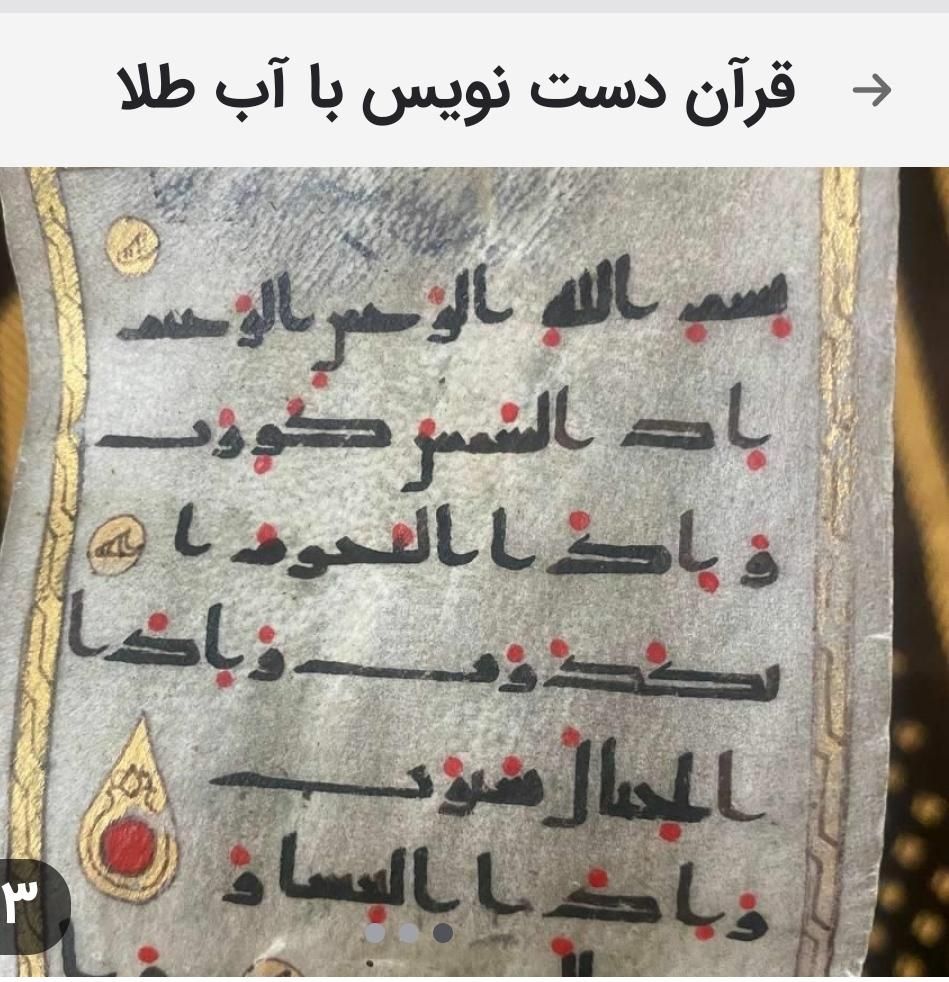 قرآن دست نویس با آب طلا
بسم الله الرحمن الرحيم
اذا الشمس كورت
و اذا النجوم ا
نكدرت و اذا
الجبال سيرت
و اذا العشار
۳